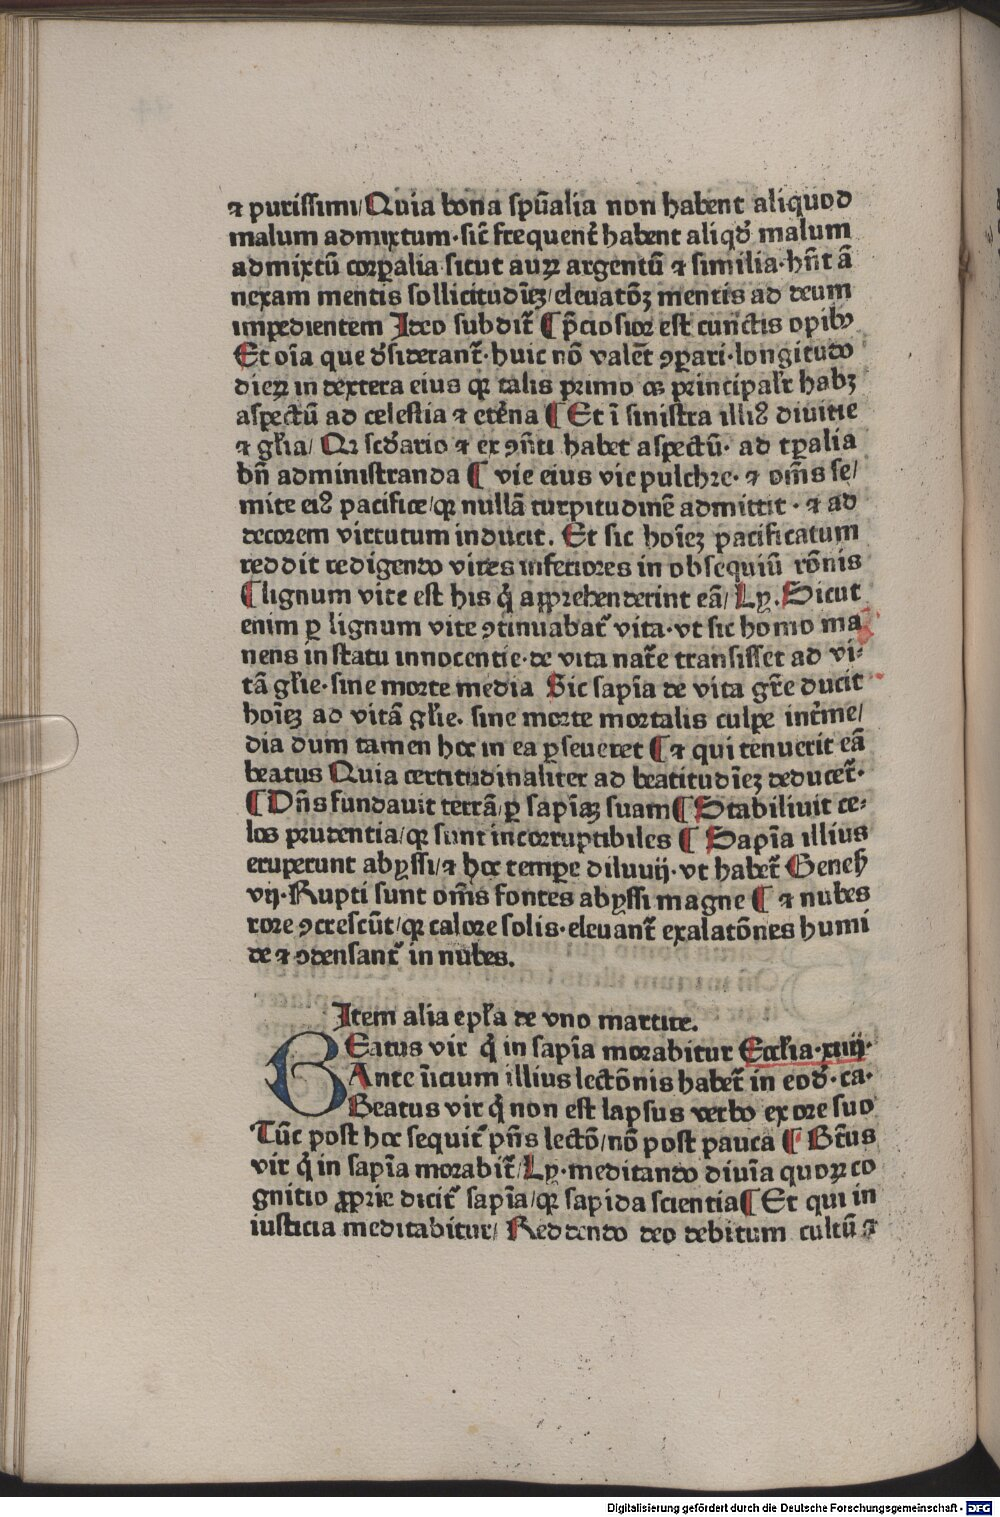 ⁊ purissimi/ Quia bona spũalia non habent aliquod
malum admixtum·sic̄ frequent̄ habent aliqḋ malum
admixtū corꝑalia·sicut auꝝ argentū ⁊ similia·hn̄t ā
nexam mentis sollicitudīeꝫ/eleuatōꝫ mentis ad deum
impedientem Ideo subdit̄ ¶ p̄ciosior est cunctis opibꝰ
Et oīa que ḋsiderant̄·huic nō valēt ꝯꝑari·longitudo
dieꝝ in dextera eius qꝛ talis primo ⁊ principalr̄ habꝫ
aspectū ad celestia ⁊ etēna ¶ Et ī sinistra illiꝰ diuitie
⁊ gl̄ia/ Qꝛ scḋario ⁊ ex ꝯn̄ti habet aspectū· ad tꝑalia
bn̄ administranda ¶ vie eius vie pulchre· ⁊ om̄s se/
mite eiꝰ pacifice/qꝛ nullā turpitudinē admittit · ⁊ ad
decorem virtutum inducit. Et sic hoīeꝫ pacificatum
reddit redigendo vires inferiores in obsequiū rōnis
¶ lignum vite est his q̇ apprehenderint eā/ Ly. Sicut
enim ꝑ lignum vite ꝯtinuabat̄ vita·vt sic homo ma
nens in statu innocentie·de vita nat̄e transisset ad vi⸗
tā gl̄ie·sine morte media Sic sapīa de vita gr̄e ducit
hoīeꝫ ad vitā gl̄ie. sine morte mortalis culpe int̄me/
dia dum tamen hoc in ea ꝑseueret ¶ ⁊ qui tenuerit eā
beatus Quia certitudinaliter ad beatitudīeꝫ deducet̄·
¶ Dn̄s fundauit terrā/ꝑ sapīaꝫ suam ¶ Stabiliuit ce⸗
los prudentia/qꝛ sunt incorruptibiles ¶ Sapīa illius
eruperunt abyssi/⁊ hoc tempe diluuij·vt habet̄ Geneẜ
vij·Rupti sunt om̄s fontes abyssi magne ¶ ⁊ nubes
rore ꝯcrescūt/qꝛ calore solis·eleuant̄ exalatōnes humi
de ⁊ ꝯdensant̄ in nubes.
Item alia epl̄a de vno martire.
BEatus vir q̇ in sapīa morabitur Eccl̄ia·xiiij·
Ante īicium illius lectōnis habet̄ in eoḋ·ca·
Beatus vir q̇ non est lapsus verbo ex ore suo
Tūc post hoc sequit̄ pn̄s lectō/nō post pauca ¶ Bt̄us
vir q̇ in sapīa morabit̄/Ly·meditando diuīa quoꝝ co
gnitio ꝓprie dicit̄ sapīa/qꝛ sapida scientia ¶ Et qui in
iusticia meditabitur/ Reddendo deo debitum cultū ⁊
Digitalisierung gefördert durch die Deutsche Forschungsgemeinschaft - DFG